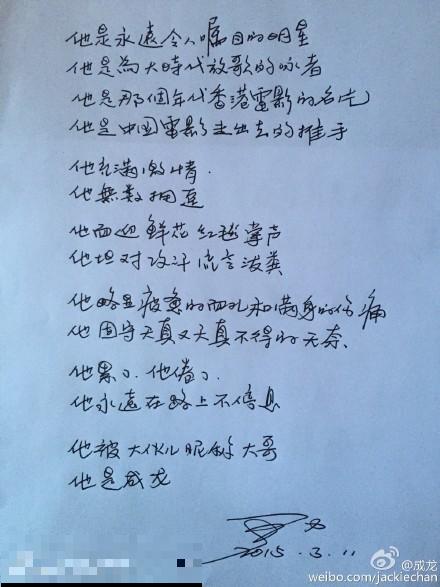 他是永遠令人囑目的明星
他是為大時代放歌的咏者
他是那個年代香港電影的名片
他是中国電影走出去的推手
他充满激情.
他無数拥趸
他面迎鲜花红毯掌声
他坦对攻讦流言泼粪
他略显疲惫的面孔和满身的伤痛
他固守天真又天真不得的无奈、
他累了.他倦了.
他永遠在路上不停息
他被大伙儿昵称大哥
他是成龙
2015.3.11
@成龙
weibo.com/jackiechan